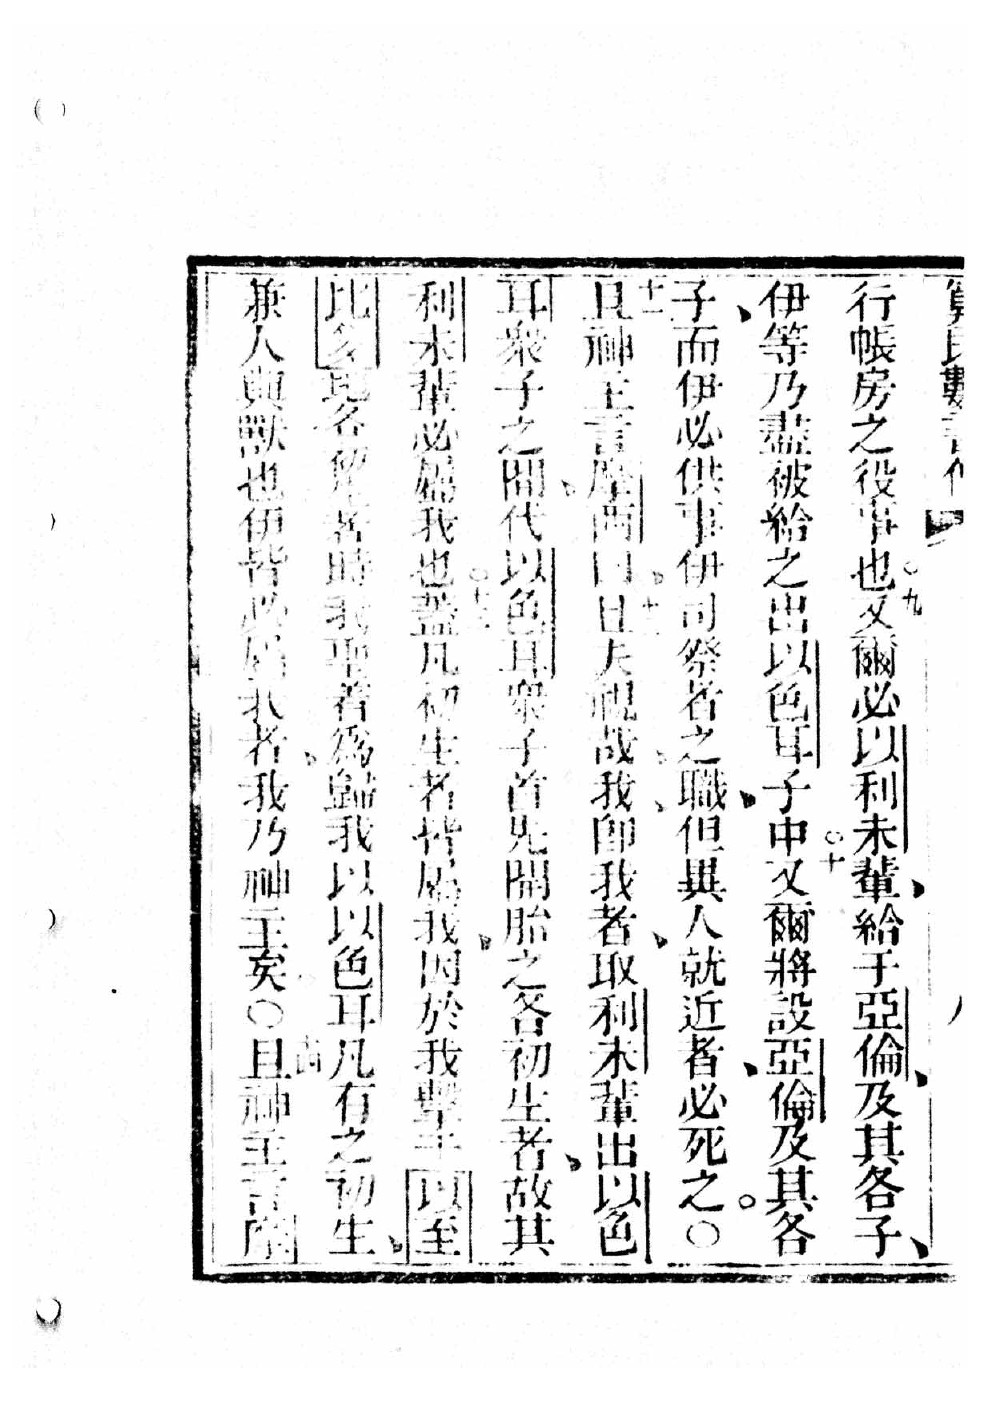 算民數書傳
行帳房之役事也○九又爾必以利未輩給于亞倫及其各子
伊等乃盡被給之出以色耳子中○十又爾將設亞倫及其各
子而伊必供事伊司祭者之職但異人就近者必死之○○
十一且神主言摩西曰十二且夫視哉我卽我者取利未輩出以色
耳眾子之間代以色耳眾子首先開胎之各初生者故其
利未輩必屬我也○十三蓋凡初生者皆屬我因於我擊于以至
比多地各初生者時我聖着爲歸我以以色耳凡有之初生
兼人與獸也伊皆必屬我者我乃神主矣○十四且神主言摩
八